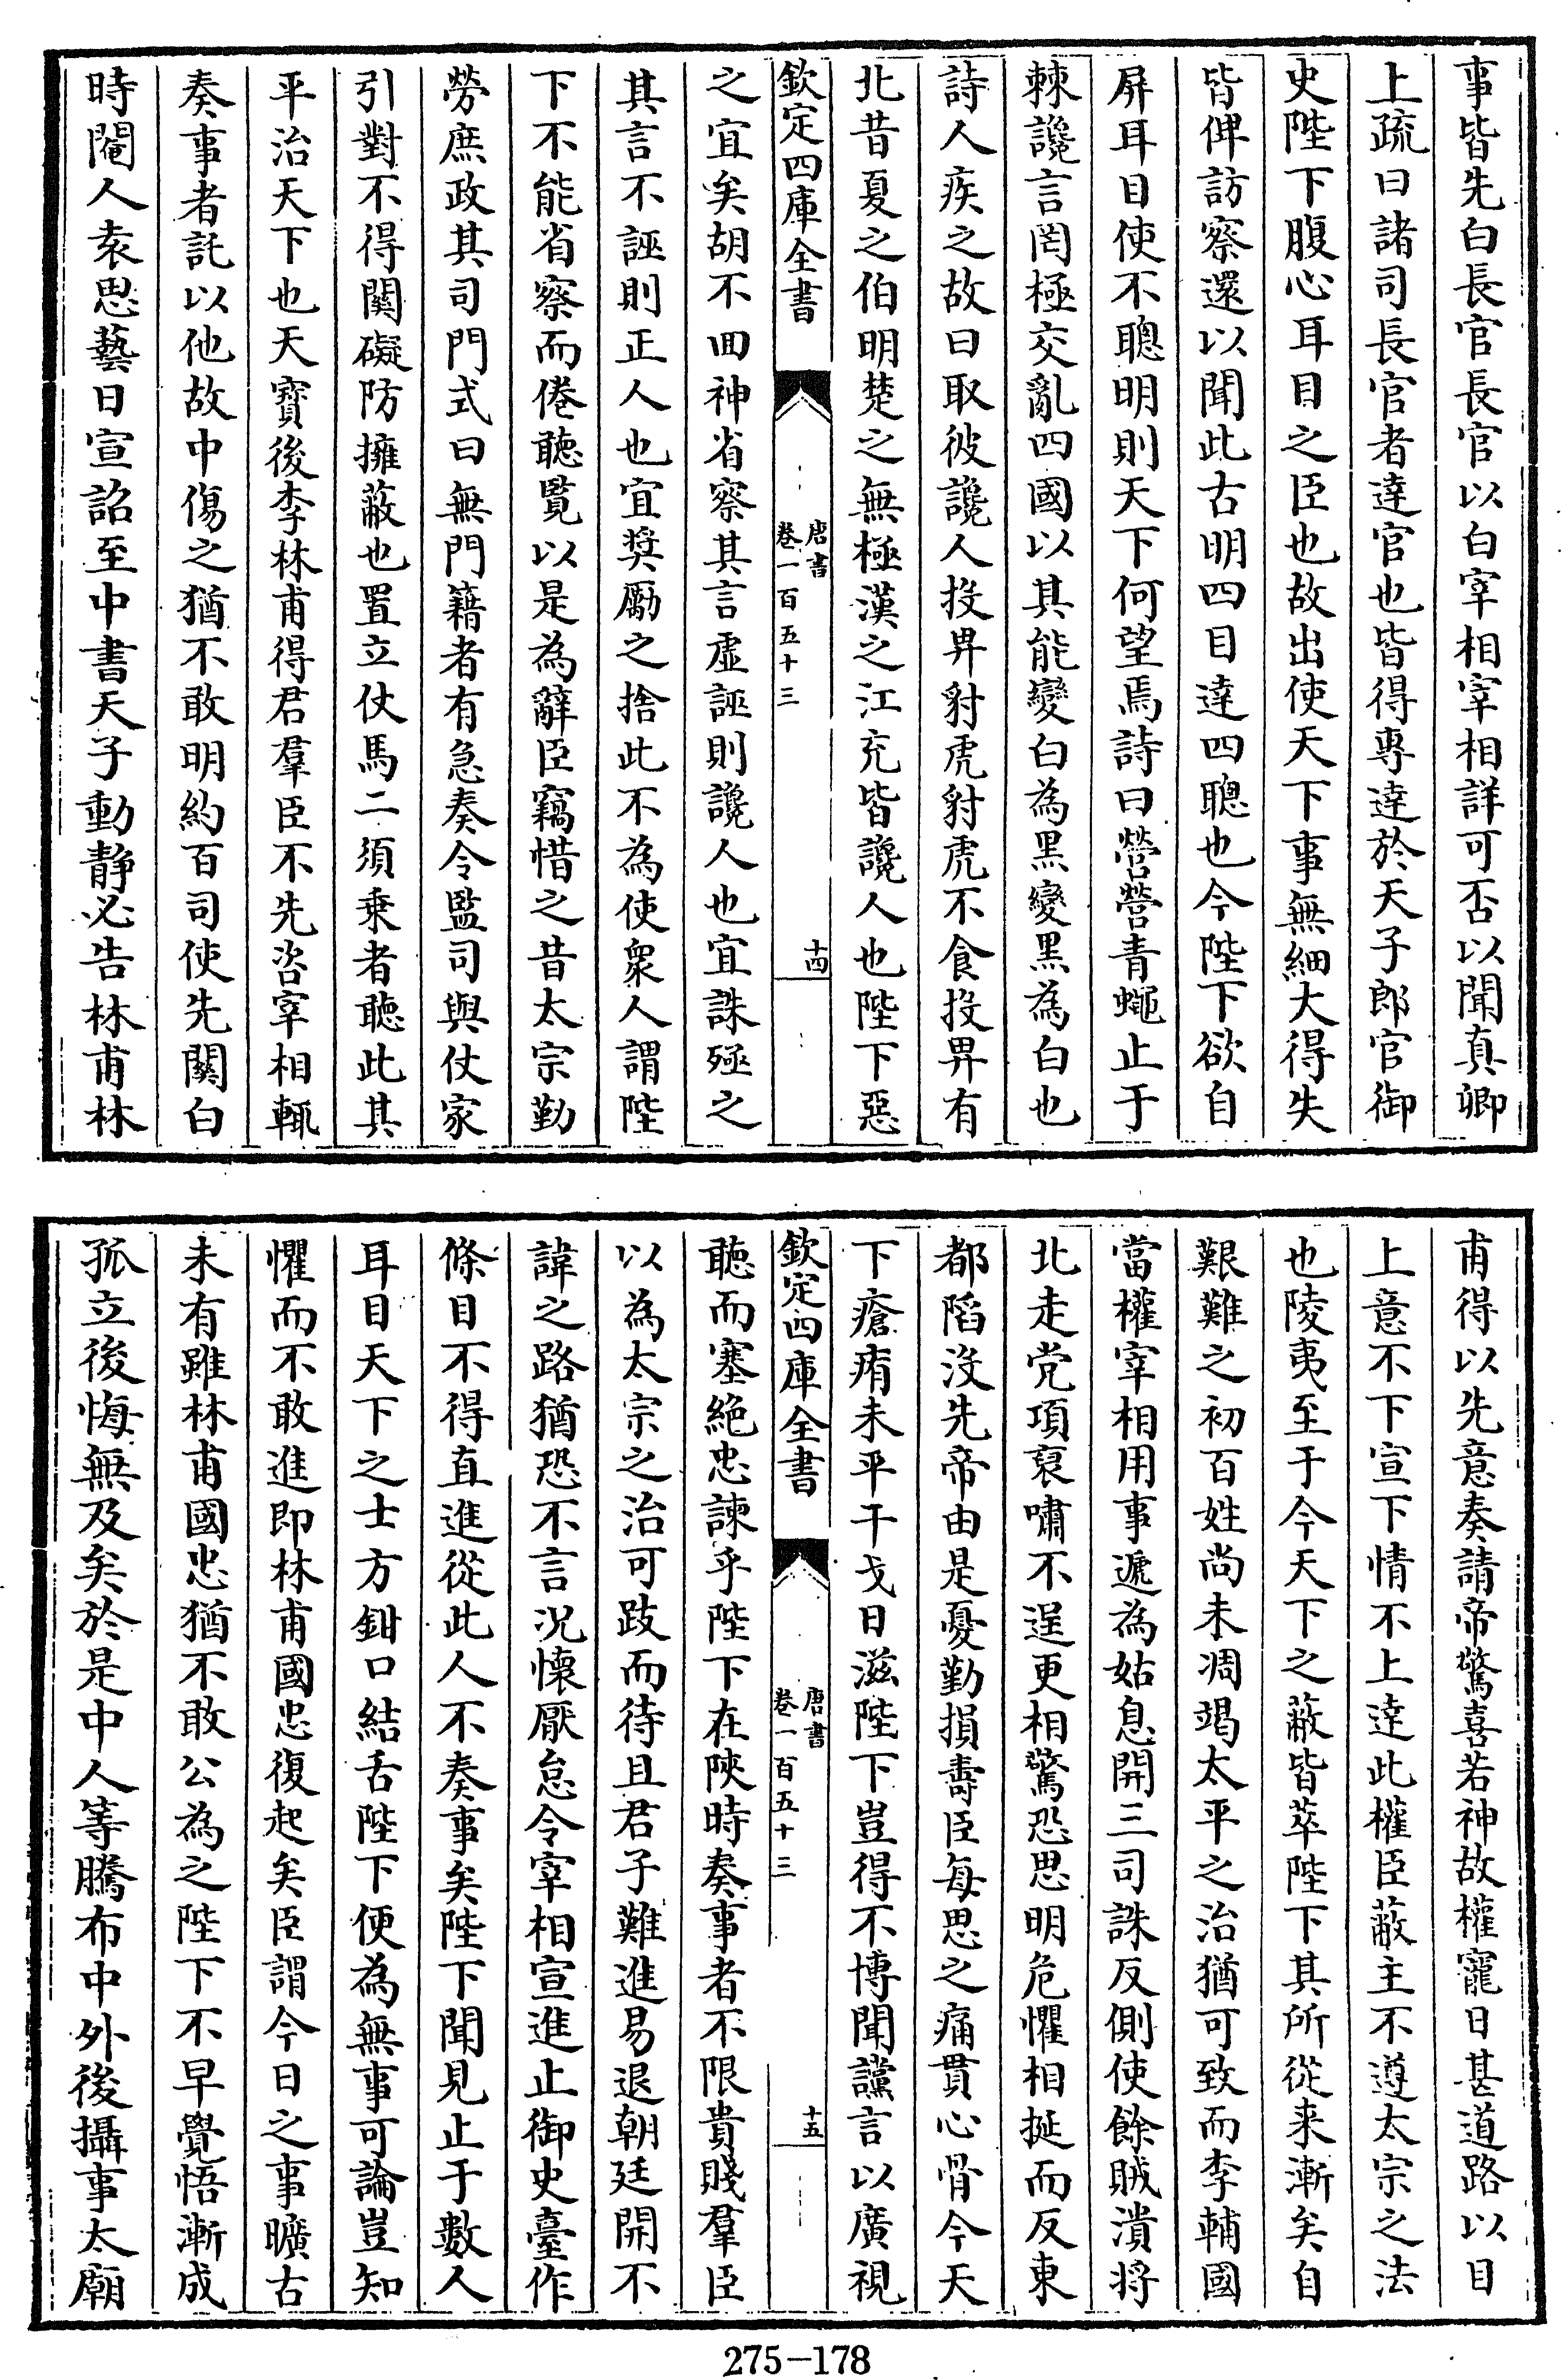 事皆先白長官長官以白宰相宰相詳可否以聞真卿
上疏曰諸司長官者達官也皆得專達於天子郎官御
史陛下腹心耳目之臣也故出使天下事無細大得失
皆俾訪察還以聞此古明四目達四聰也今陛下欲自
屏耳目使不聰明則天下何望焉詩曰營營青蠅止于
棘讒言罔極交亂四國以其能變白為黑變黑為白也
詩人疾之故曰取彼讒人投畀豺虎豺虎不食投畀有
北昔夏之伯明楚之無極漢之江充皆讒人也陛下惡
欽定四庫全書
唐書
卷一百五十三
十四
之宜矣胡不回神省察其言虛誣則讒人也宜誅殛之
其言不誣則正人也宜奬勵之捨此不為使衆人謂陛
下不能省察而倦聽覧以是為辭臣竊惜之昔太宗勤
勞庶政其司門式曰無門籍者有急奏令監司與仗家
引對不得關礙防擁蔽也置立仗馬二須乗者聽此其
平治天下也天寳後李林甫得君羣臣不先咨宰相輒
奏事者託以他故中傷之猶不敢明約百司使先關白
時閹人袁思藝日宣詔至中書天子動静必告林甫林
甫得以先意奏請帝驚喜若神故權寵日甚道路以目
上意不下宣下情不上達此權臣蔽主不遵太宗之法
也陵夷至于今天下之蔽皆萃陛下其所從来漸矣自
艱難之初百姓尚未凋竭太平之治猶可致而李輔國
當權宰相用事遞為姑息開三司誅反側使餘賊潰將
北走党項裒嘯不逞更相驚恐思明危懼相挻而反東
都䧟沒先帝由是憂勤損夀臣每思之痛貫心骨今天
下瘡痏未平干戈日滋陛下豈得不博聞讜言以廣視
欽定四庫全書
唐書
卷一百五十三
十五
聽而塞絶忠諫乎陛下在陜時奏事者不限貴賤羣臣
以為太宗之治可跂而待且君子難進易退朝廷開不
諱之路猶恐不言况懐厭怠令宰相宣進止御史臺作
條目不得直進從此人不奏事矣陛下聞見止于數人
耳目天下之士方鉗口結舌陛下便為無事可論豈知
懼而不敢進即林甫國忠復起矣臣謂今日之事曠古
未有雖林甫國忠猶不敢公為之陛下不早覺悟漸成
孤立後悔無及矣於是中人等騰布中外後攝事太廟
275-178